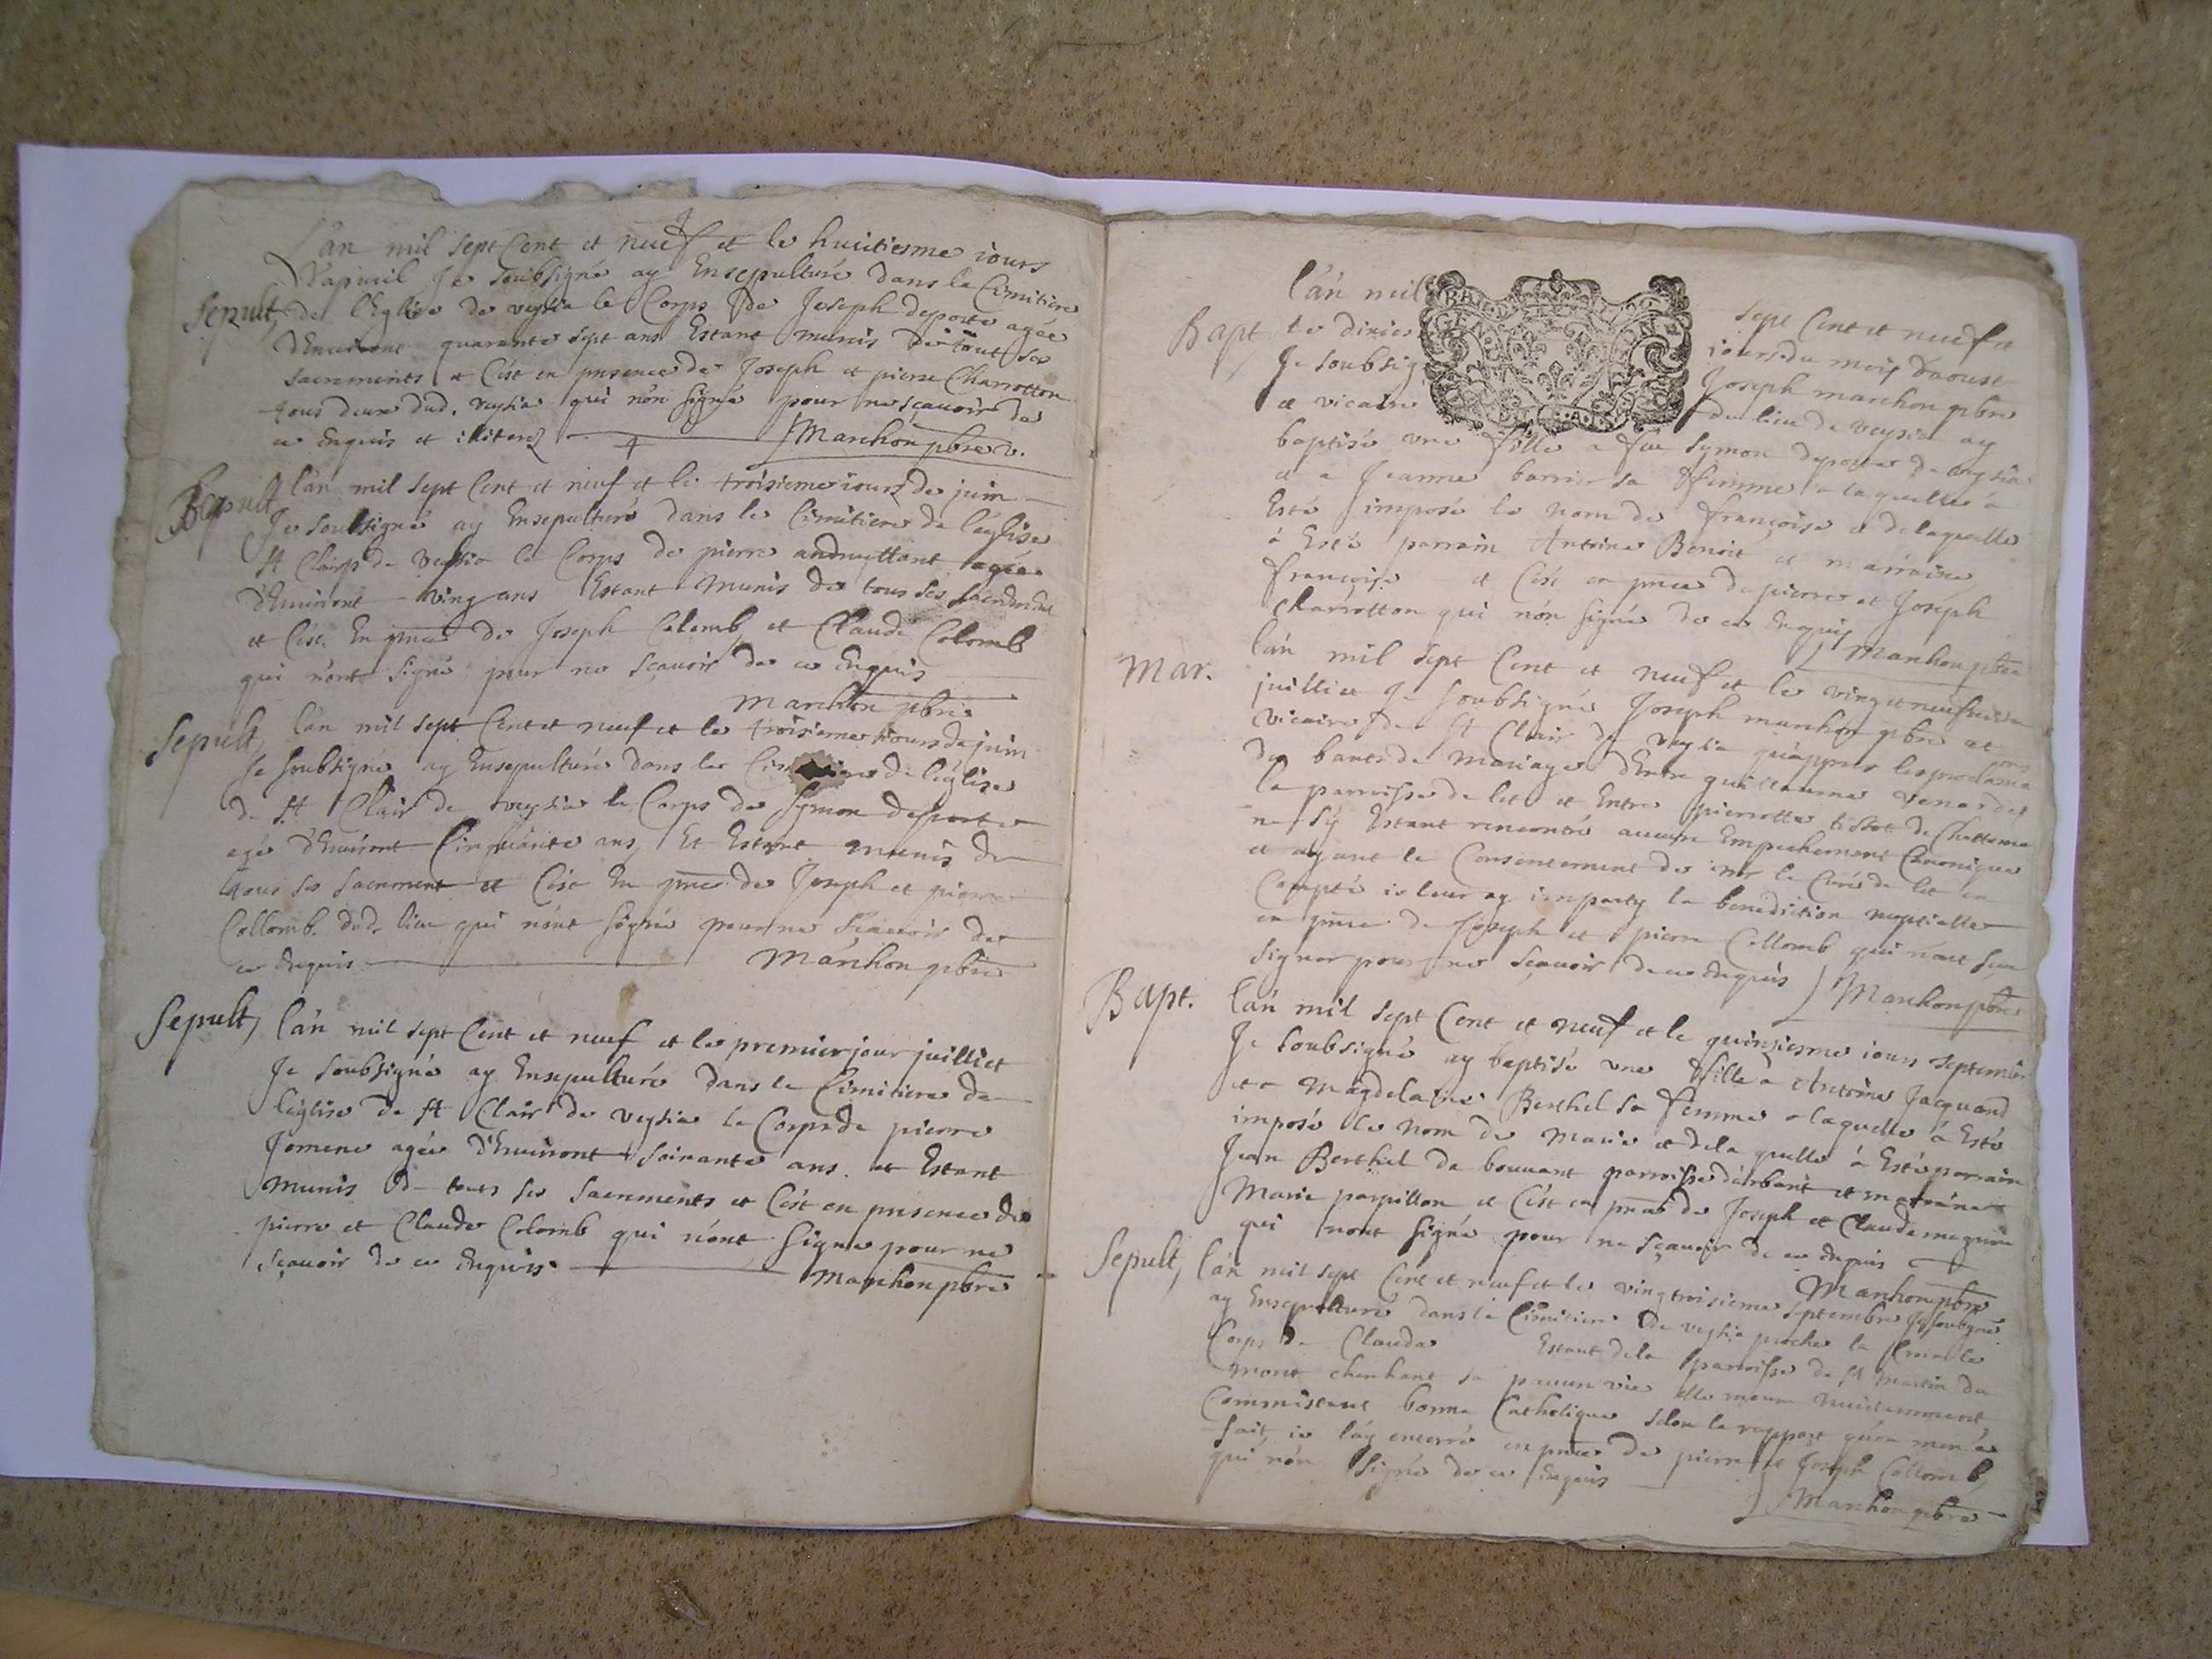 l'an mil sept Cent et neuf et le huictiesme iours
D'apvril Je soubsigné ay Ensepulturé dans le Cimitiere
Sepult, de l'Eglise de veysia le Corps de Joseph deporte agee
d'Environt quarante sept ans Estant munis de tout ses
sacrements et C'est en presence de Joseph et pierre Charrotton
tous deux dud. veysia qui n'on signé pour ne sçavoir de
ce Enquis et Marchon pbre v.
Sepult l'an mil sept Cent et neuf et le troisieme iours de juin
Je soubsigné ay Ensepulturé dans le Cimitiere de l'eglise
St Clair de Veysia le Corps de pierre agée
d'Environt ving ans Estant Munis de tous ses
et C'est En pnce de Joseph Colomb et Claude Colomb
qui n'ont signé pour ne sçavoir de ce Enquis
Marchon pbre
Sepult, l'an mil sept Cent et neuf et le troisieme iours de juin
Je soubsigné ay Ensepulturé dans le de l'eglise
de St Clair de veysia le Corps de Symon deporte
agé d'Environt Cinquante ans Et Estant munis de
tous ses sacrement et C'est En pnce de Joseph et pierre
Collomb dud. lieu qui n'ont signé pour ne sçavoir de
ce Enquis Marchon pbre
Sepult, l'an mil sept Cent et neuf et le premier jour juilliet
Je soubsigné ay Ensepulturé dans le Cimitiere de
l'eglise de St Clair de veysia le Corps de pierre
Jomene agée d'Environt soixante ans et Estant
munis de touts ses sacrements et C'est en presence de
pierre et Claude Colomb qui n'ont signe pour ne
sçavoir de ce Enquis Marchon pbre
l'an mil sept Cent et neuf et
Bapt le iours du mois d'aoust
Je soubsig Joseph marchon pbre
et vicaire du lieu de veysia ay
baptisé une fille a feu Symon deporte de veysia
et a Jeanne sa femme a laquelle a
Esté imposé le nom de françoise et de laquelle
à Esté parrain Antoine Benoit et marraine
françoise et C'est en pnce de pierre et Joseph
Charrotton qui n'on signé de ce Enquis
Marchon pbre
Mar. l'an mil sept Cent et neuf et le vingt neufvieme
juilliet Je soubsigné Joseph marchon pbre et
vicaire de St Clair de veysia qu'appres les proclama
des bants de Mariage d'Entre guillaume de
la parroisse de et Entre pierrotte tissot de
ne s'y Estant rencontré aucun Empechement Canonique
et ayant le Consentement de mr le Curé de
ie leur ay imparty la benediction nuptialle
en pnce de Joseph et pierre Collomb qui n'ont sceu
signer pour ne sçavoir de ce Enquis Marchon pbre
Bapt. l'an mil sept Cent et neuf et le quinziesme iours septembre
Je soubsigné ay baptisé une fille a Antoine Jacquand
et a Magdelaine Berthel sa femme a laquelle à Esté
imposé le nom de Marie et de la quelle à Esté parrain
Jean Berthel de bouvant parroisse d'arbant et mareine
Marie papillon et C'est en pnce de Joseph et Claude
qui nont signé pour ne sçavoir de ce Enquis
Marchon pbre
Sepult, l'an mil sept Cent et neuf et le vingtroisieme septembre Je soubsigné
ay Ensepulturé dans le Cimitiere de veysia proche la le
Corps de Claude Estant de la parroisse de St Martin du
mont cherchant sa vie elle
bonne Catholique selon le rapport qu'on men a
fait ie l'ay enterré en pnce de pierre et Joseph Collomb
qui n'on signé de ce Enquis
Marchon pbre